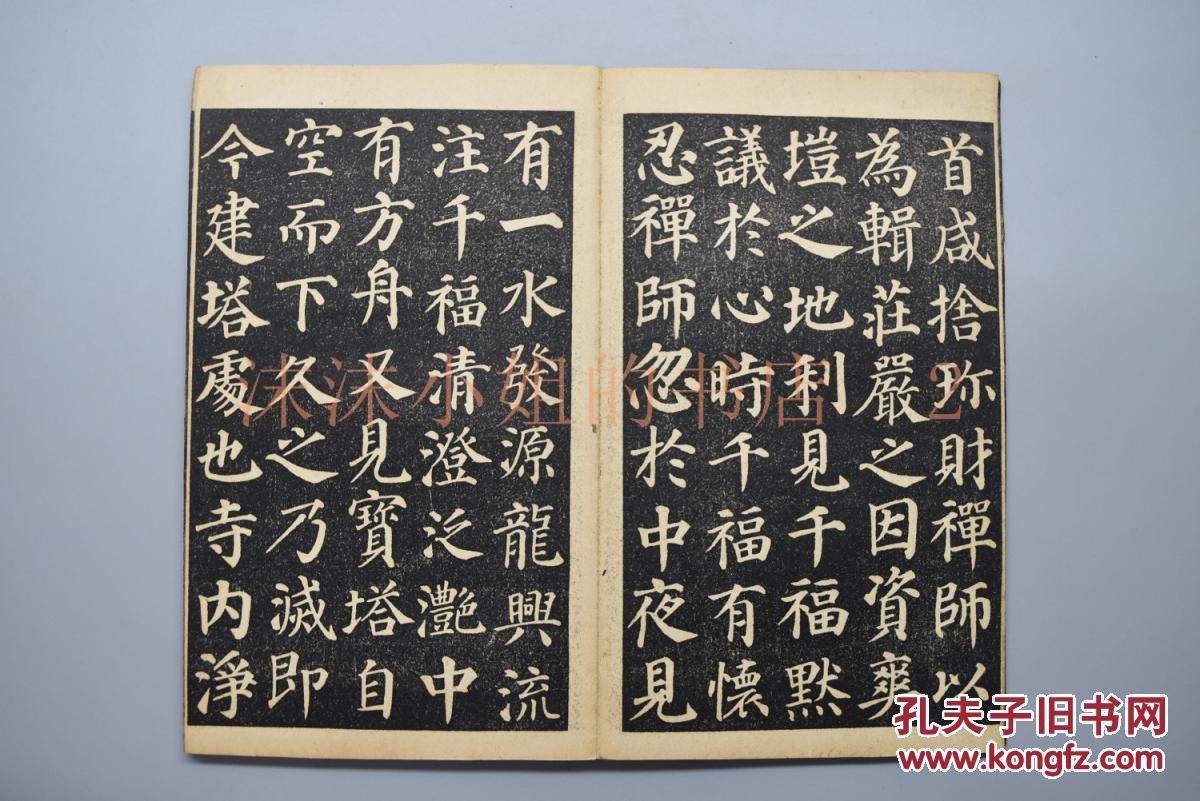 首咸捨珎財禪師以
為輯莊嚴之因資爽
塏之地利見千福默
議於心時千福有懷
忍禪師忽於中夜見
有一水發源龍興流
注千福清澄泛灧中
有方舟又見寶塔自
空而下久之乃滅即
今建塔處也寺内淨
沫沫小姐的书店 2
孔夫子旧书网
www.kongfz.com